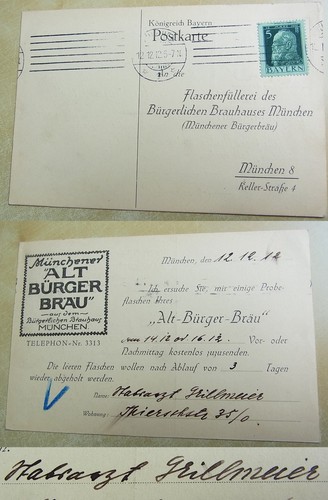 Königreich Bayern
Postkarte
13.12.12.6-7N
An die
5
BAYERN
Flaschenfüllerei des
Bürgerlichen Brauhauses München
(Münchener Bürgerbräu)
München 8
Keller-Straße 4
Münchener
"ALT
BÜRGER
BRÄU"
aus dem
Bürgerlichen Brauhaus
MÜNCHEN.
TELEPHON-Nr. 3313
München, den 12.12.12
Ich ersuche Sie, mir einige Probe-
flaschen Ihres:
„Alt-Bürger-Bräu"
am 14.12 od 16.12. Vor- oder
Nachmittag kostenlos zuzusenden.
Die leeren Flaschen wollen nach Ablauf von 3 Tagen
wieder abgeholt werden.
Name: Stabsarzt Grillmeier
Wohnung: Thierschstr 35/0.
Stabsarzt Grillmeier